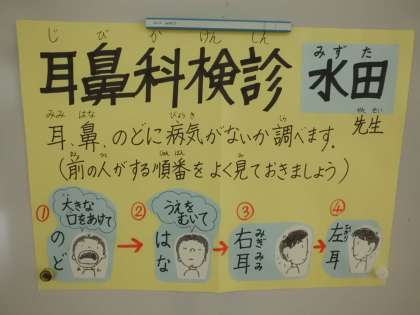 じびかけんしん
耳鼻科検診
みずた
水田
せんせい
先生
みみ はな びょうき しら
耳、鼻、のどに病気がないか調べます。
まえ ひと じゅんばん み
(前の人がする順番をよく見ておきましょう)
①
大きな
口をあけて
のど
②
うえを
むいて
はな
③
右耳
みぎみみ
④
左耳
ひだり